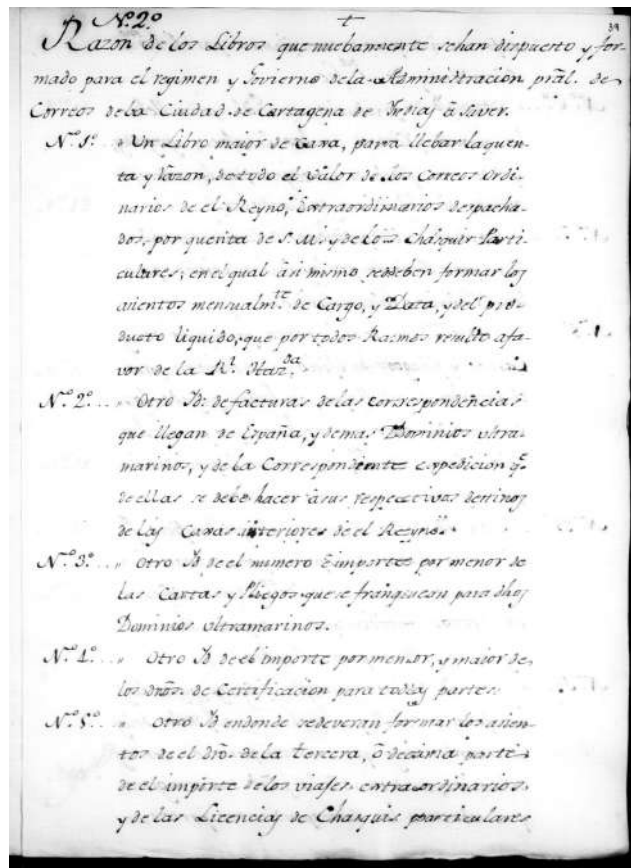 N.º 2.º
39
Razon de los Libros que nuebamente sehan dispuesto y for-
mado para el regimen y Govierno dela Administración pral. de
Correos dela Ciudad de Cartagena de Yndias â Saver.
N.º 1.º " Un Libro maior de Caxa, para llebar laquen-
ta y razon, detodo el valor de los Correos ordi-
narios de el Reyno, Extraordinarios despacha-
dos, por quenta de S. M. y de los Chasquis Parti-
culares; enel qual âsi mismo sedeben formar los
asientos mensualm.te de Cargo, y Data, y del pro-
ducto liquido, que por todos Ramos resulte afa-
vor de la R.l Haz.da
N.º 2.º " Otro Yd. de facturas delas correspondencias
que llegan de España, y demas Dominios ultra-
marinos, y de la Correspondiente expedición q.e
de ellas se debe hacer âsus respectivos destinos
de las Caxas interiores de el Reyno.
N.º 3.º " Otro Yd. de el numero è importe por menor de
las Cartas y Pliegos que se franquean para dhos
Dominios ultramarinos.
N.º 4.º " Otro Yd. de el importe por menor, y maior de
los dros. de Certificacion para todas partes.
N.º 5.º " Otro Yd. endonde sedeveran formar los asien-
tos de el dro. dela tercera, ô decima parte
de el importe delos viajes extraordinarios,
y de las Licencias de Chasquis particulares